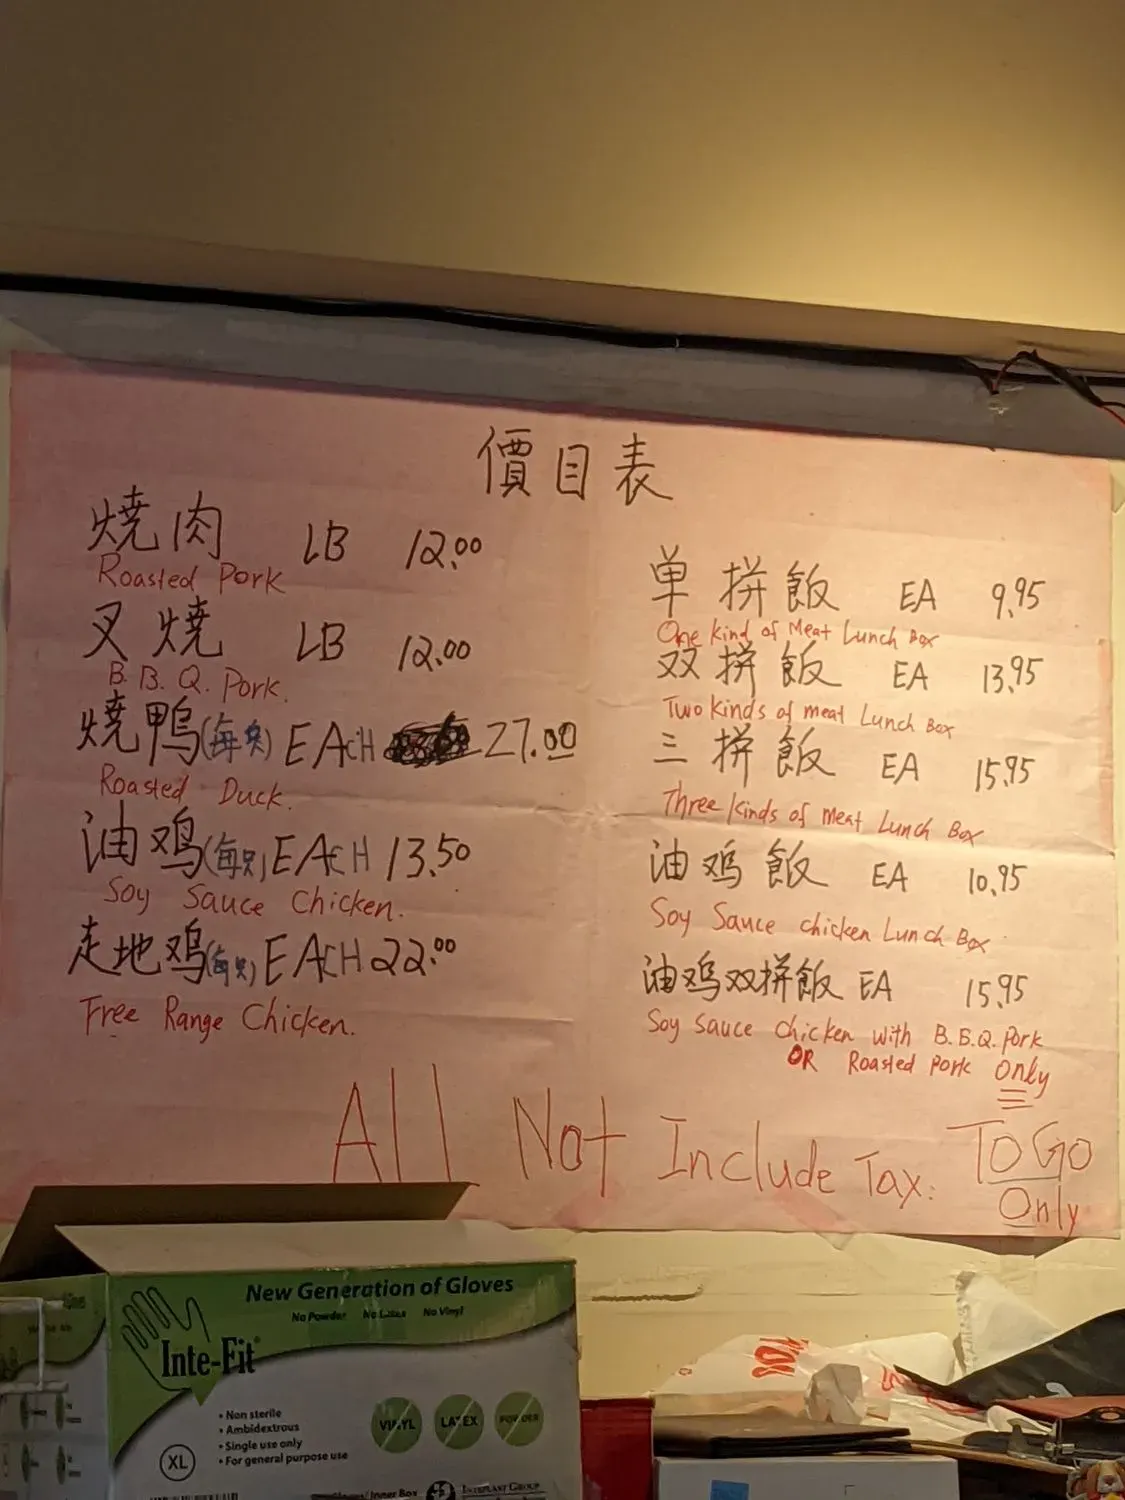 價目表
燒肉 LB 12.00
Roasted Pork
叉燒 LB 12.00
B.B.Q. Pork.
燒鴨(每只) EACH 27.00
Roasted Duck.
油鸡(每只) EACH 13.50
Soy Sauce Chicken.
走地鸡(每只) EACH 22.00
Free Range Chicken.
单拼飯 EA 9.95
One Kind of Meat Lunch Box
双拼飯 EA 13.95
Two Kinds of meat Lunch Box
三拼飯 EA 15.95
Three Kinds of meat Lunch Box
油鸡飯 EA 10.95
Soy Sauce chicken Lunch Box
油鸡双拼飯 EA 15.95
Soy Sauce Chicken with B.B.Q. Pork
OR Roasted Pork Only
All Not Include Tax: To Go
Only
New Generation of Gloves
No Powder No Latex No Vinyl
Inte-Fit
• Non sterile
• Ambidextrous
• Single use only
• For general purpose use
XL
VINYL LATEX POWDER
Inner Box INTEPLAST GROUP